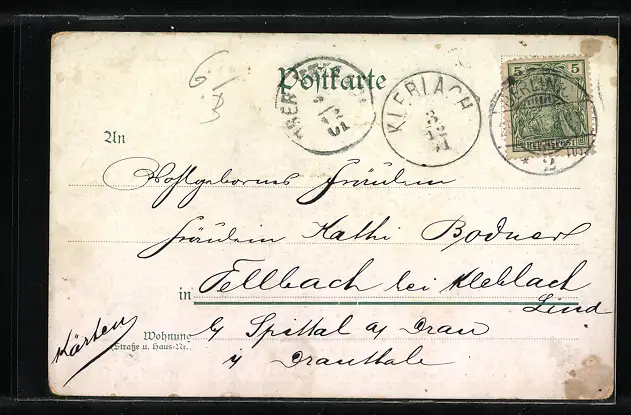 Postkarte
KLEBLACH
3
12
01
5 5
REICHSPOST
2
An
Wohlgeborenes Fräulein
Fräulein Kathi Bodner
in Fellbach bei Kleblach
Lind
Wohnung
(Straße u. Haus-Nr.)
b/ Spittal a/ Drau
i/ Drauthale
Kärnten